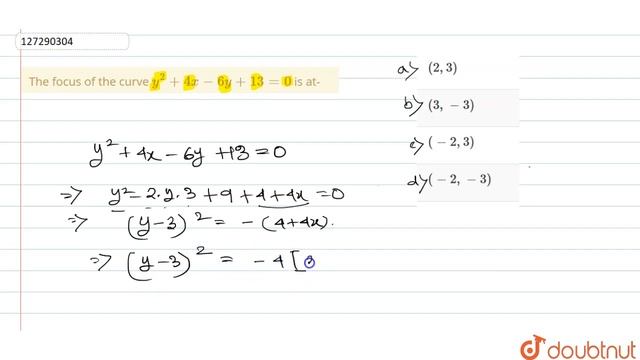 127290304
The focus of the curve y² + 4x − 6y + 13 = 0 is at-
a) (2, 3)
b) (3, − 3)
c) (− 2, 3)
d) (− 2, − 3)
y² + 4x − 6y + 13 = 0
=> y² − 2.y.3 + 9 + 4 + 4x = 0
=> (y − 3)² = − (4 + 4x).
=> (y − 3)² = − 4 [
doubtnut